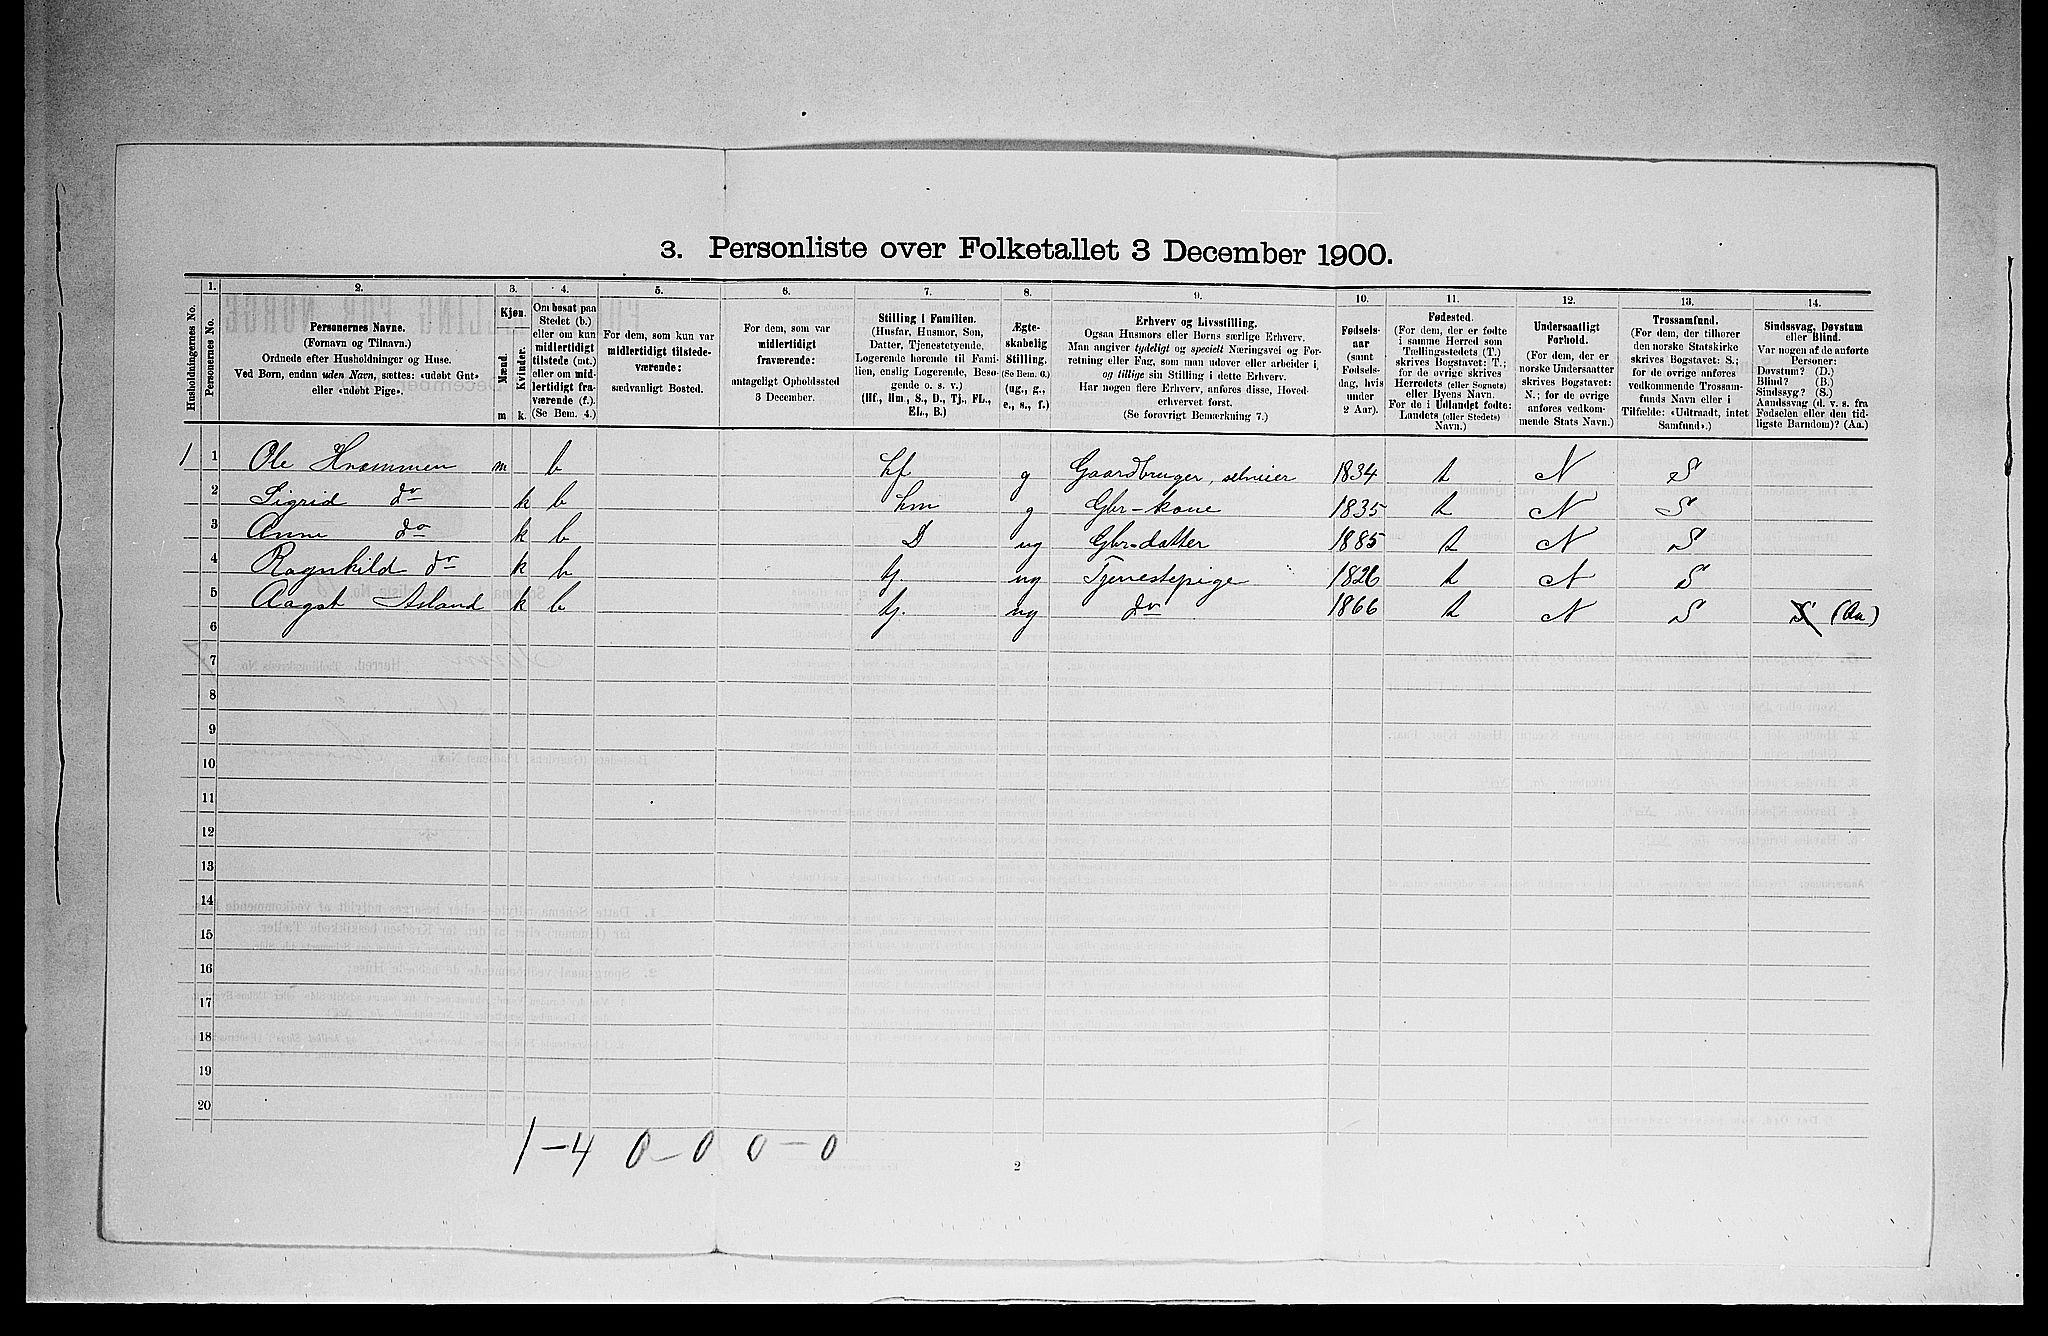 3. Personliste over Folketallet 3 December 1900.
Husholdningernes No.
1.
Personernes No.
2.
Personernes Navne.
(Fornavn og Tilnavn.)
Ordnede efter Husholdninger og Huse.
Ved Børn, endnu uden Navn, sættes: «udøbt Gut»
eller «udøbt Pige».
3.
Kjøn.
Mænd.
Kvinder.
m k.
4.
Om bosat paa
Stedet (b.)
eller om kun
midlertidigt
tilstede (mt.)
eller om mid-
lertidigt fra-
værende (f.).
(Se Bem. 4.)
5.
For dem, som kun var
midlertidigt tilstede-
værende:
sædvanligt Bosted.
6.
For dem, som var
midlertidigt
fraværende:
antageligt Opholdssted
3 December.
7.
Stilling i Familien.
(Husfar, Husmor, Søn,
Datter, Tjenestetyende,
Logerende hørende til Fami-
lien, enslig Logerende, Besø-
gende o. s. v.)
(Hf., Hm., S., D., Tj., FL.,
EL., B.)
8.
Ægte-
skabelig
Stilling.
(Se Bem. 6.)
(ug., g.,
e., s., f.)
9.
Erhverv og Livsstilling.
Ogsaa Husmors eller Børns særlige Erhverv.
Man angiver tydeligt og specielt Næringsvei og For-
retning eller Fag, som man udøver eller arbeider i,
og tillige sin Stilling i dette Erhverv.
Har nogen flere Erhverv, anføres disse, Hoved-
erhvervet først.
(Se forøvrigt Bemærkning 7.)
10.
Fødsels-
aar
(samt
Fødsels-
dag, hvis
under
2 Aar).
11.
Fødested.
(For dem, der er fødte
i samme Herred som
Tællingsstedets (T.)
skrives Bogstavet: T.;
for de øvrige skrives
Herredets (eller Sognets)
eller Byens Navn.
For de i Udlandet fødte:
Landets (eller Stedets)
Navn.)
12.
Undersaatligt
Forhold.
(For dem, der er
norske Undersaatter
skrives Bogstavet:
N.; for de øvrige
anføres vedkom-
mende Stats Navn.)
13.
Trossamfund.
(For dem, der tilhører
den norske Statskirke
skrives Bogstavet: S.;
for de øvrige anføres
vedkommende Trossam-
funds Navn eller i
Tilfælde: «Udtraadt, intet
Samfund».)
14.
Sindssvag, Døvstum
eller Blind.
Var nogen af de anførte
Personer:
Døvstum? (D.)
Blind? (B.)
Sindssyg? (S.)
Aandssvag (d. v. s. fra
Fødselen eller den tid-
ligste Barndom)? (Aa.)
1 1 Ole Krammen m b hf g Gaardbruger, selveier 1834 t N S
2 Sigrid do k b hm g Gbr-kone 1835 t N S
3 Anne do k b D ug Gbr-datter 1885 t N S
4 Ragnhild do k b tj. ug Tjenestepige 1826 t N S
5 Aagot Asland k b tj. ug do 1866 t N S S (Aa)
6
7
8
9
10
11
12
13
14
15
16
17
18
19
20
1–4 0–0 0–0
2